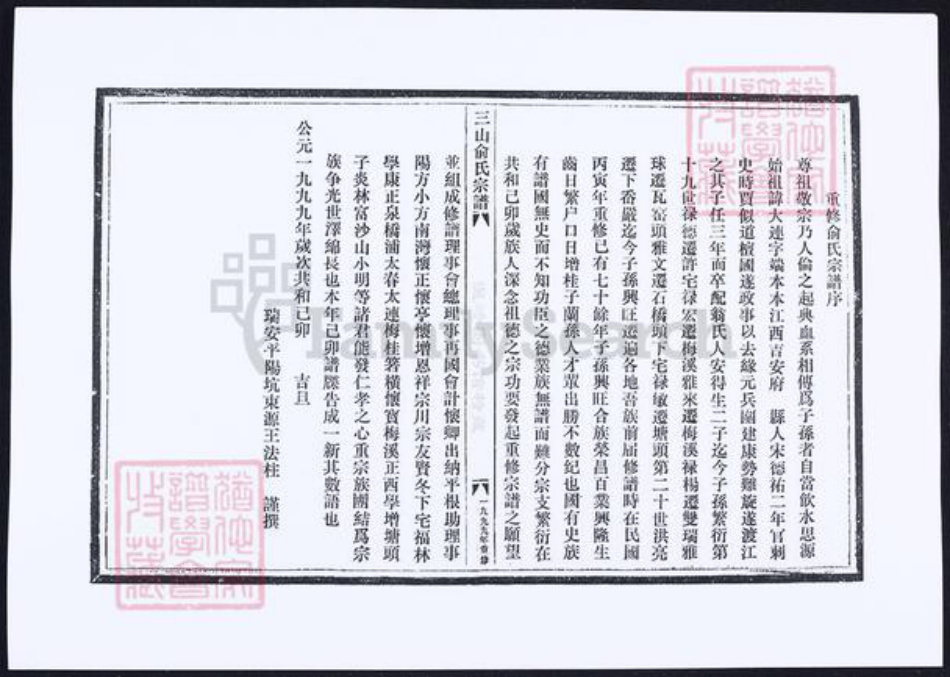 重修俞氏宗譜序
尊祖敬宗乃人倫之起典血系相傳爲子孫者自當飲水思源
始祖諱大連字端本本江西吉安府 縣人宋德祐二年官刺
史時賈似道檀國遂政事以去緣元兵圍建康勢難旋遂渡江
之其子任三年而卒配翁氏人安得生二子迄今子孫繁衍第
十九世禄德遷許宅禄宏遷梅溪雅來遷梅溪禄楊遷雙瑞雅
球遷瓦窑頭雅文遷石橋頭下宅禄敏遷塘頭第二十世洪亮
遷下嶴嚴迄今子孫興旺遷遍各地吾族前届修譜時在民國
丙寅年重修已有七十餘年子孫興旺合族榮昌百業興隆生
齒日繁户口日增桂子蘭孫人才輩出勝不數紀也國有史族
有譜國無史而不知功臣之德業族無譜而難分宗支繁衍在
共和己卯歲族人深念祖德之宗功要發起重修宗譜之願望
三山俞氏宗譜
一九九九年重修
並組成修譜理事會總理事再國會計懷卿出納平根助理事
陽方小方南灣懷正懷亭懷增恩祥宗川宗友賢冬下宅福林
學康正泉橋浦太春太連梅桂箬橫懷寳梅溪正西學增塘頭
子炎林富沙山小明等諸君能發仁孝之心重宗族團結爲宗
族争光世澤綿長也本年己卯譜牒告成一新其數語也
公元一九九九年歲次共和己卯 吉旦
瑞安平陽坑東源王法柱 謹撰
FamilySearch